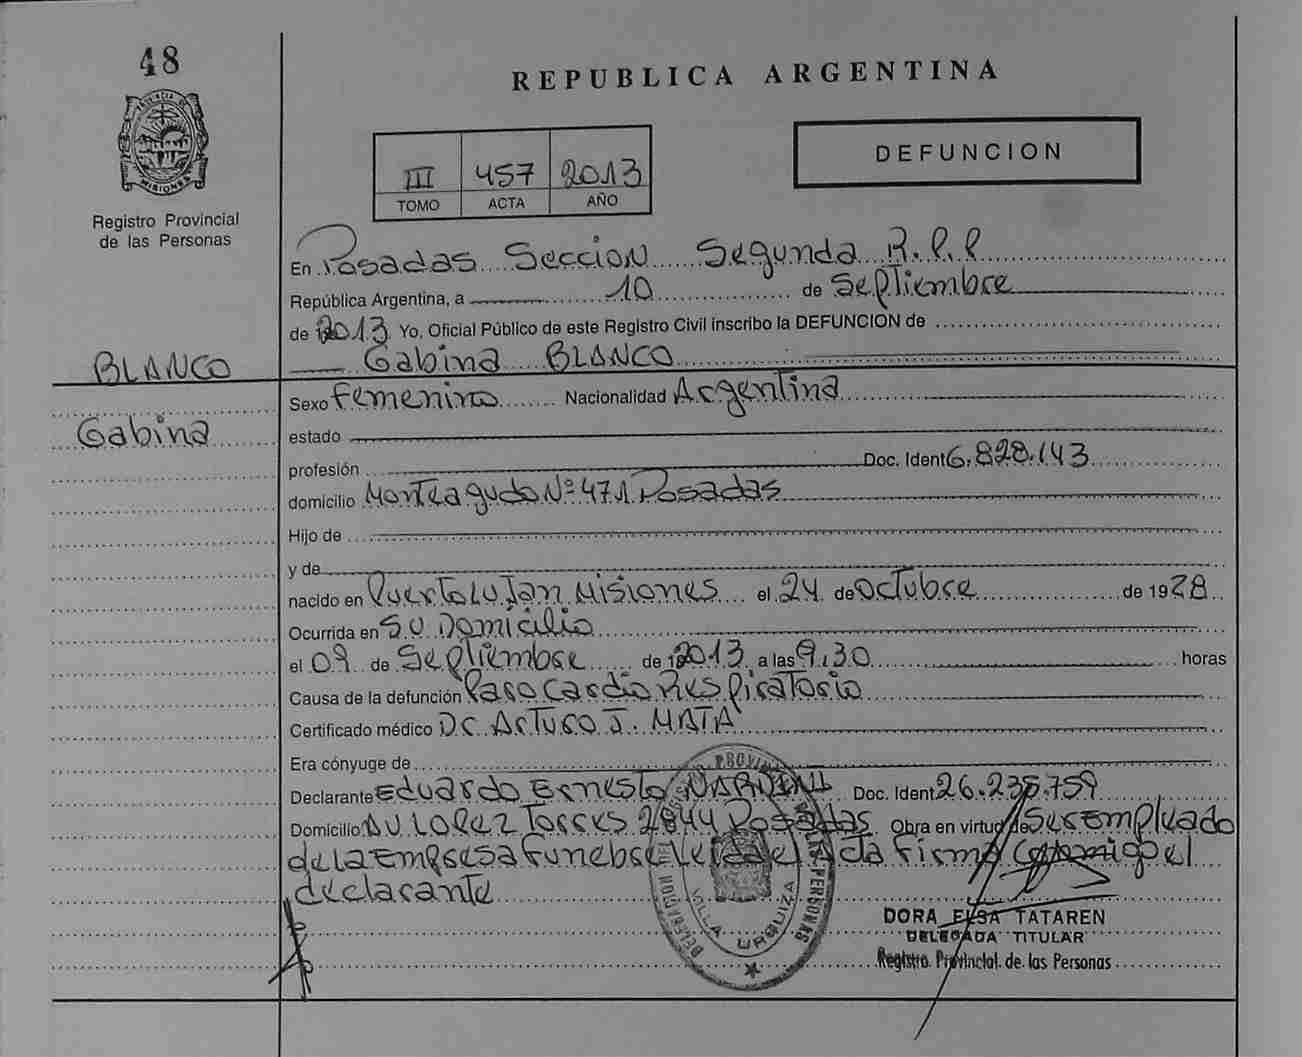 48
REPUBLICA ARGENTINA
PROVINCIA DE MISIONES
Registro Provincial
de las Personas
III 457 2013
TOMO ACTA AÑO
DEFUNCION
En Posadas Seccion Segunda R.P.P
República Argentina, a 10 de Septiembre
de 2013 Yo, Oficial Público de este Registro Civil inscribo la DEFUNCION de
BLANCO
Gabina BLANCO
Gabina
Sexo Femenino Nacionalidad Argentina
estado
profesión Doc. Ident 6.828.143
domicilio Monteagudo Nº 471 Posadas
Hijo de
y de
nacido en Puerto Lujan Misiones el 24 de Octubre de 1928
Ocurrida en SU Domicilio
el 09 de Septiembre de 2013 a las 9:30 horas
Causa de la defunción Paro Cardio Respiratorio
Certificado médico Dr. Arturo J. MATA
Era cónyuge de
Declarante Eduardo Ernesto NARDINI Doc. Ident 26.235.759
Domicilio AV. Lopez Torres 2844 Posadas Obra en virtud de Ser Empleado
de la Empresa Funebre Leida el Acta Firma Conmigo el
declarante
VILLA URQUIZA
DORA ELSA TATAREN
DELEGADA TITULAR
Registro Provincial de las Personas